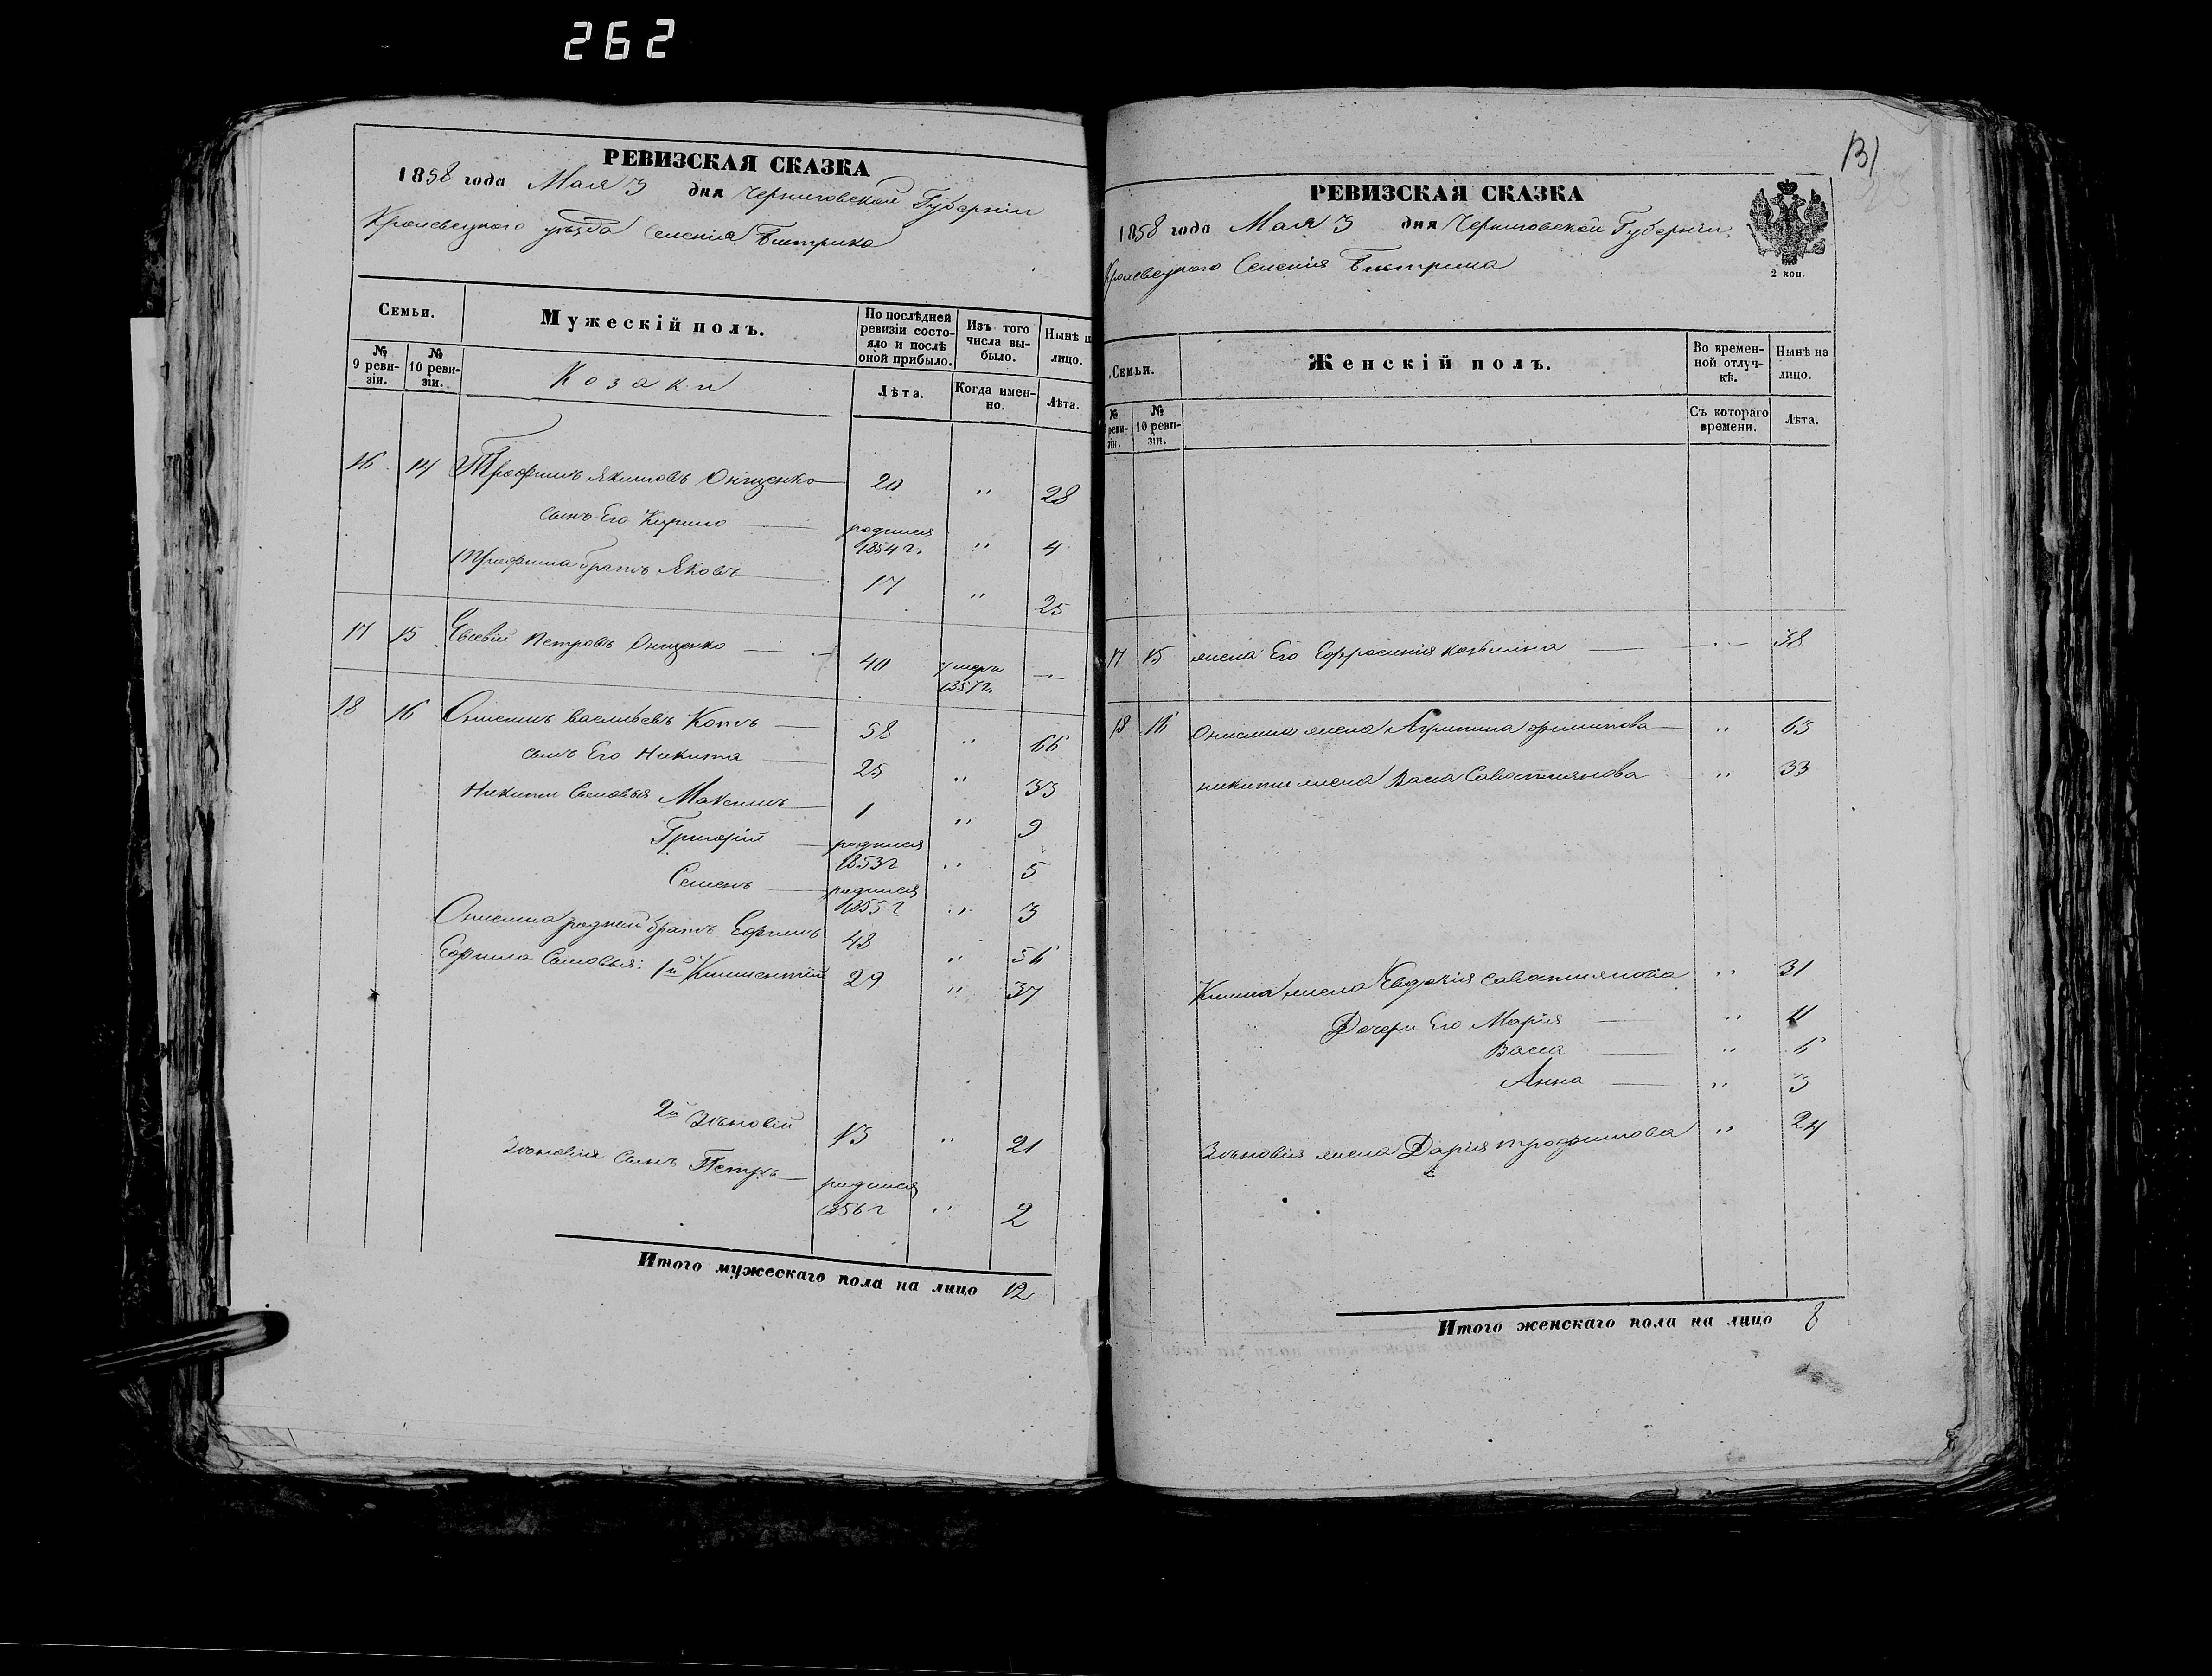 262
РЕВИЗСКАЯ СКАЗКА
1858 года Мая 3 дня Черниговской Губерніи
Кролевецкого уѣзда Селенія Быстрика
Семьи.
Мужескій полъ.
По послѣдней ревизіи состояло и послѣ оной прибыло.
Изъ того числа выбыло.
Нынѣ н лицо.
№ 9 ревизіи.
№ 10 ревизіи.
Козаки
Лѣта.
Когда именно.
Лѣта.
16 14 Трофимъ Якимовъ Онищенко 20 " 28
сынъ Его Кирило родился 1854 г. " 4
Трофима братъ Яковъ 17 " 25
17 15 Евсевій Петровъ Онищенко 40 умеръ 1857 г. —
18 16 Онисимъ Васильевъ Котъ 58 " 66
сынъ Его Никита 25 " 33
Никиты Сыновья Максимъ 1 " 9
Григорій родился 1853 г " 5
Семенъ родился 1855 г " 3
Онисима родной братъ Ефимъ 48 " 56
Ефима Сыновья: 1й Климентій 29 " 37
2й Зѣновій 13 " 21
Зѣновія Сынъ Петръ родился 1856 г " 2
Итого мужескаго пола на лицо 12
131
РЕВИЗСКАЯ СКАЗКА
1858 года Мая 3 дня Черниговской Губерніи
Кролевецкого Селенія Быстрика
2 коп.
Семьи.
Женскій полъ.
Во временной отлучкѣ.
Нынѣ на лицо.
№ реви-зіи.
№ 10 ревизіи.
Съ котораго времени.
Лѣта.
17 15 жена Его Ефросинія 38
18 16 Онисима жена Агрипина Филипова " 63
Никиты жена Васа Саватиянова " 33
Клима жена Евдокія Саватиянова " 31
Дочери Его Марія " 11
Васса " 6
Анна " 3
Зѣновія жена Дарія Трофимова " 24
Итого женскаго пола на лицо 8